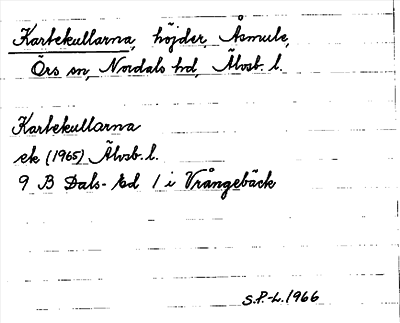 Kartekullarna, höjder, Åsmule,
Örs sn, Nordals hd, Älvsb. l.
Kartekullarna
ek (1965) Älvsb. l.
9 B Dals-Ed 1 i Vrångebäck
S.P-L. 1966